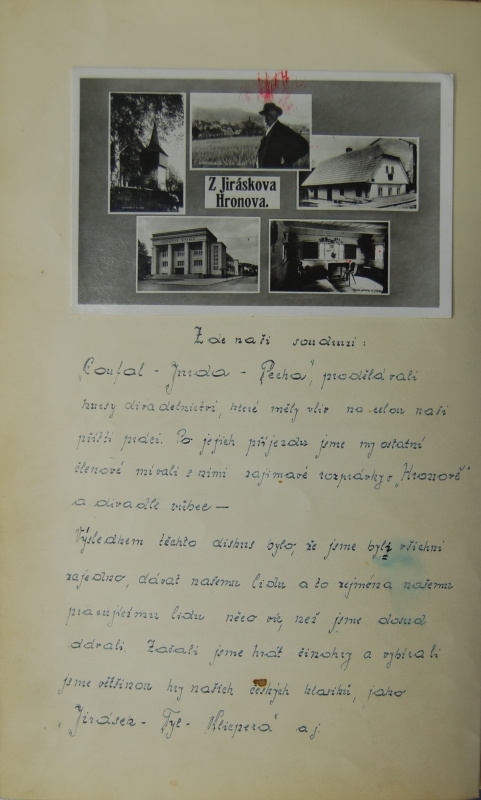 Z Jiráskova
Hronova.
Zde naši soudruzi:
"Coufal - Jurda - Pecha", prodělávali
kursy divadelnictví, které měly vliv na celou naši
příští práci. Po jejich příjezdu jsme my ostatní
členové mívali s nimi zajímavé rozprávky o "Hronově"
a divadle vůbec —
Výsledkem těchto diskus bylo, že jsme byli všichni
zajedno, dávat našemu lidu a to zejména našemu
pracujícímu lidu něco víc, než jsme dosud
dávali. Začali jsme hrát činohry a vybírali
jsme většinou hry našich českých klasiků, jako
"Jirásek - Tyl - Klicpera" a j.